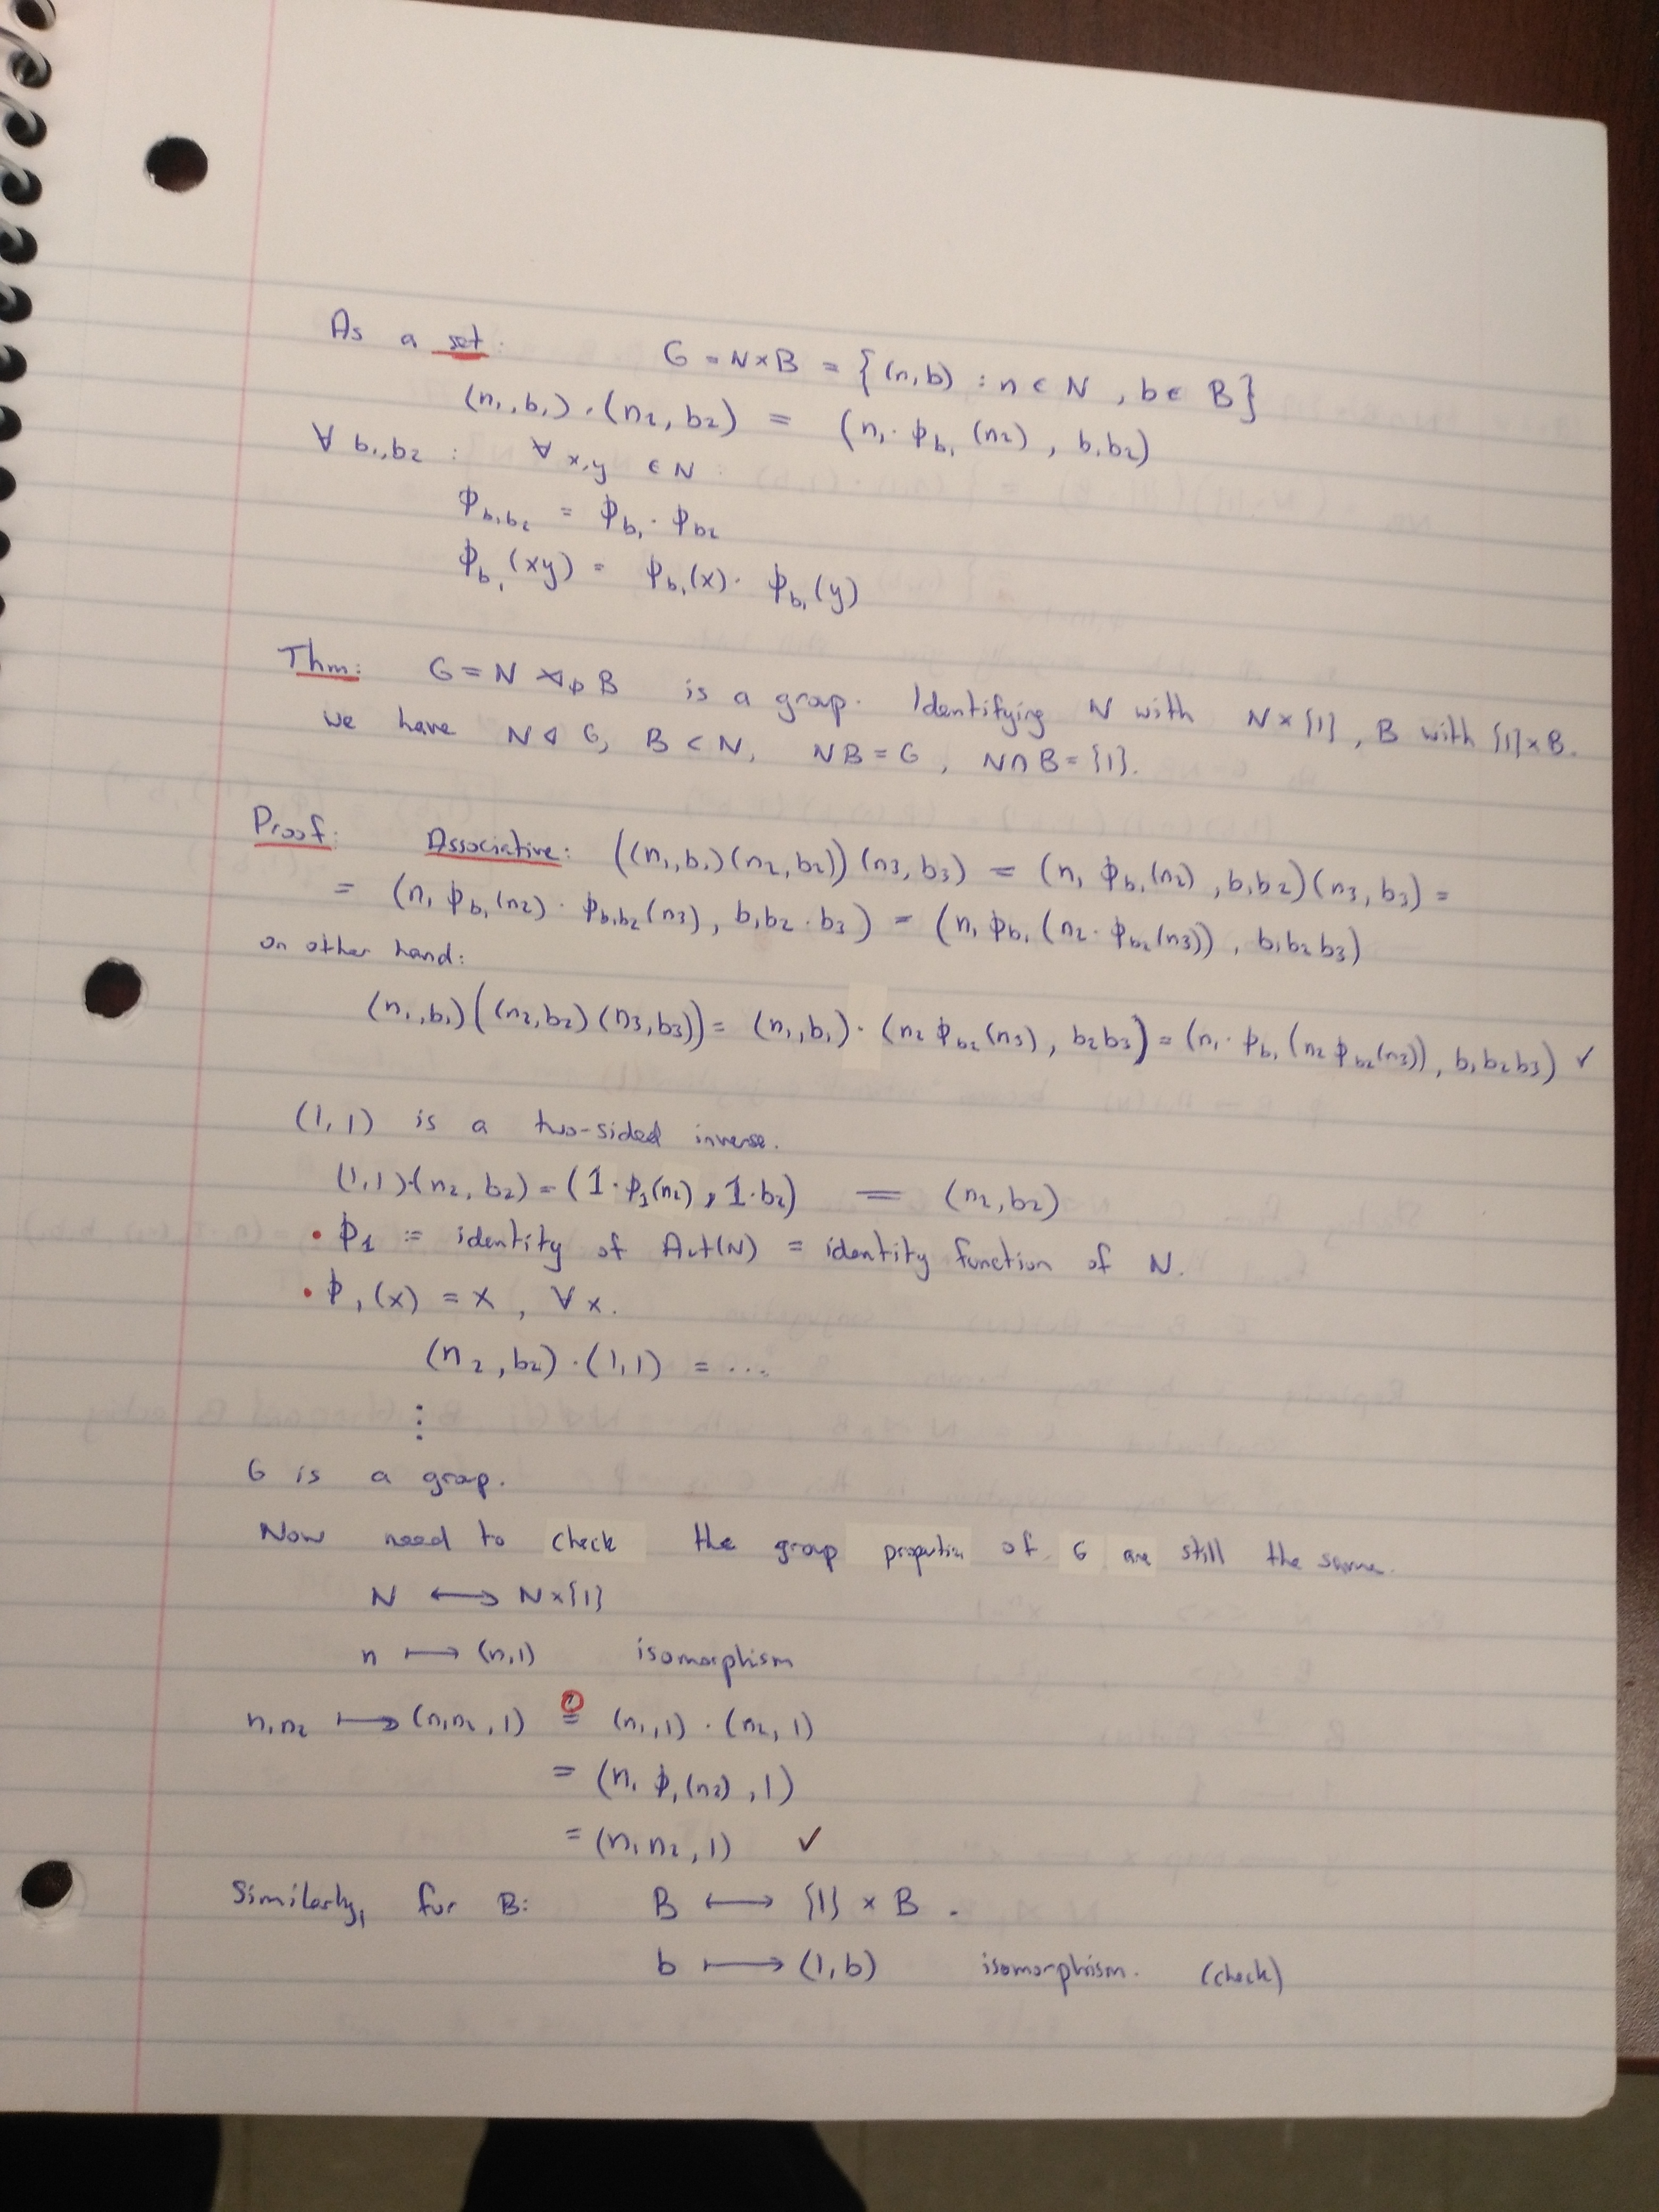 As a set: G = N×B = {(n,b) : n ∈ N , b ∈ B}
(n₁,b₁)·(n₂,b₂) = (n₁·ϕ_b₁(n₂) , b₁b₂)
∀ b₁,b₂ : ∀ x,y ∈ N :
ϕ_b₁b₂ = ϕ_b₁ · ϕ_b₂
ϕ_b₁(xy) = ϕ_b₁(x) · ϕ_b₁(y)
Thm: G = N ⋊_ϕ B is a group. Identifying N with N×{1} , B with {1}×B.
we have N ◁ G, B < N, NB = G , N∩B = {1}.
Proof: Associative: ((n₁,b₁)(n₂,b₂))(n₃,b₃) = (n₁ ϕ_b₁(n₂) , b₁b₂)(n₃,b₃) =
= (n₁ ϕ_b₁(n₂) · ϕ_b₁b₂(n₃) , b₁b₂·b₃) = (n₁ ϕ_b₁(n₂·ϕ_b₂(n₃)) , b₁b₂b₃)
on other hand:
(n₁,b₁)((n₂,b₂)(n₃,b₃)) = (n₁,b₁)·(n₂ ϕ_b₂(n₃) , b₂b₃) = (n₁·ϕ_b₁(n₂ϕ_b₂(n₃)) , b₁b₂b₃) ✓
(1,1) is a two-sided inverse.
(1,1)·(n₂,b₂) = (1·ϕ₁(n₂) , 1·b₂) = (n₂,b₂)
• ϕ₁ := identity of Aut(N) = identity function of N.
• ϕ₁(x) = x , ∀x.
(n₂,b₂)·(1,1) = ...
⋮
G is a group.
Now need to check the group properties of G are still the same.
N ⟷ N×{1}
n ⟼ (n,1) isomorphism
n₁n₂ ⟼ (n₁n₂,1) ≟ (n₁,1)·(n₂,1)
= (n₁ ϕ₁(n₂) , 1)
= (n₁n₂,1) ✓
Similarly, for B: B ⟷ {1} × B .
b ⟼ (1,b) isomorphism. (check)